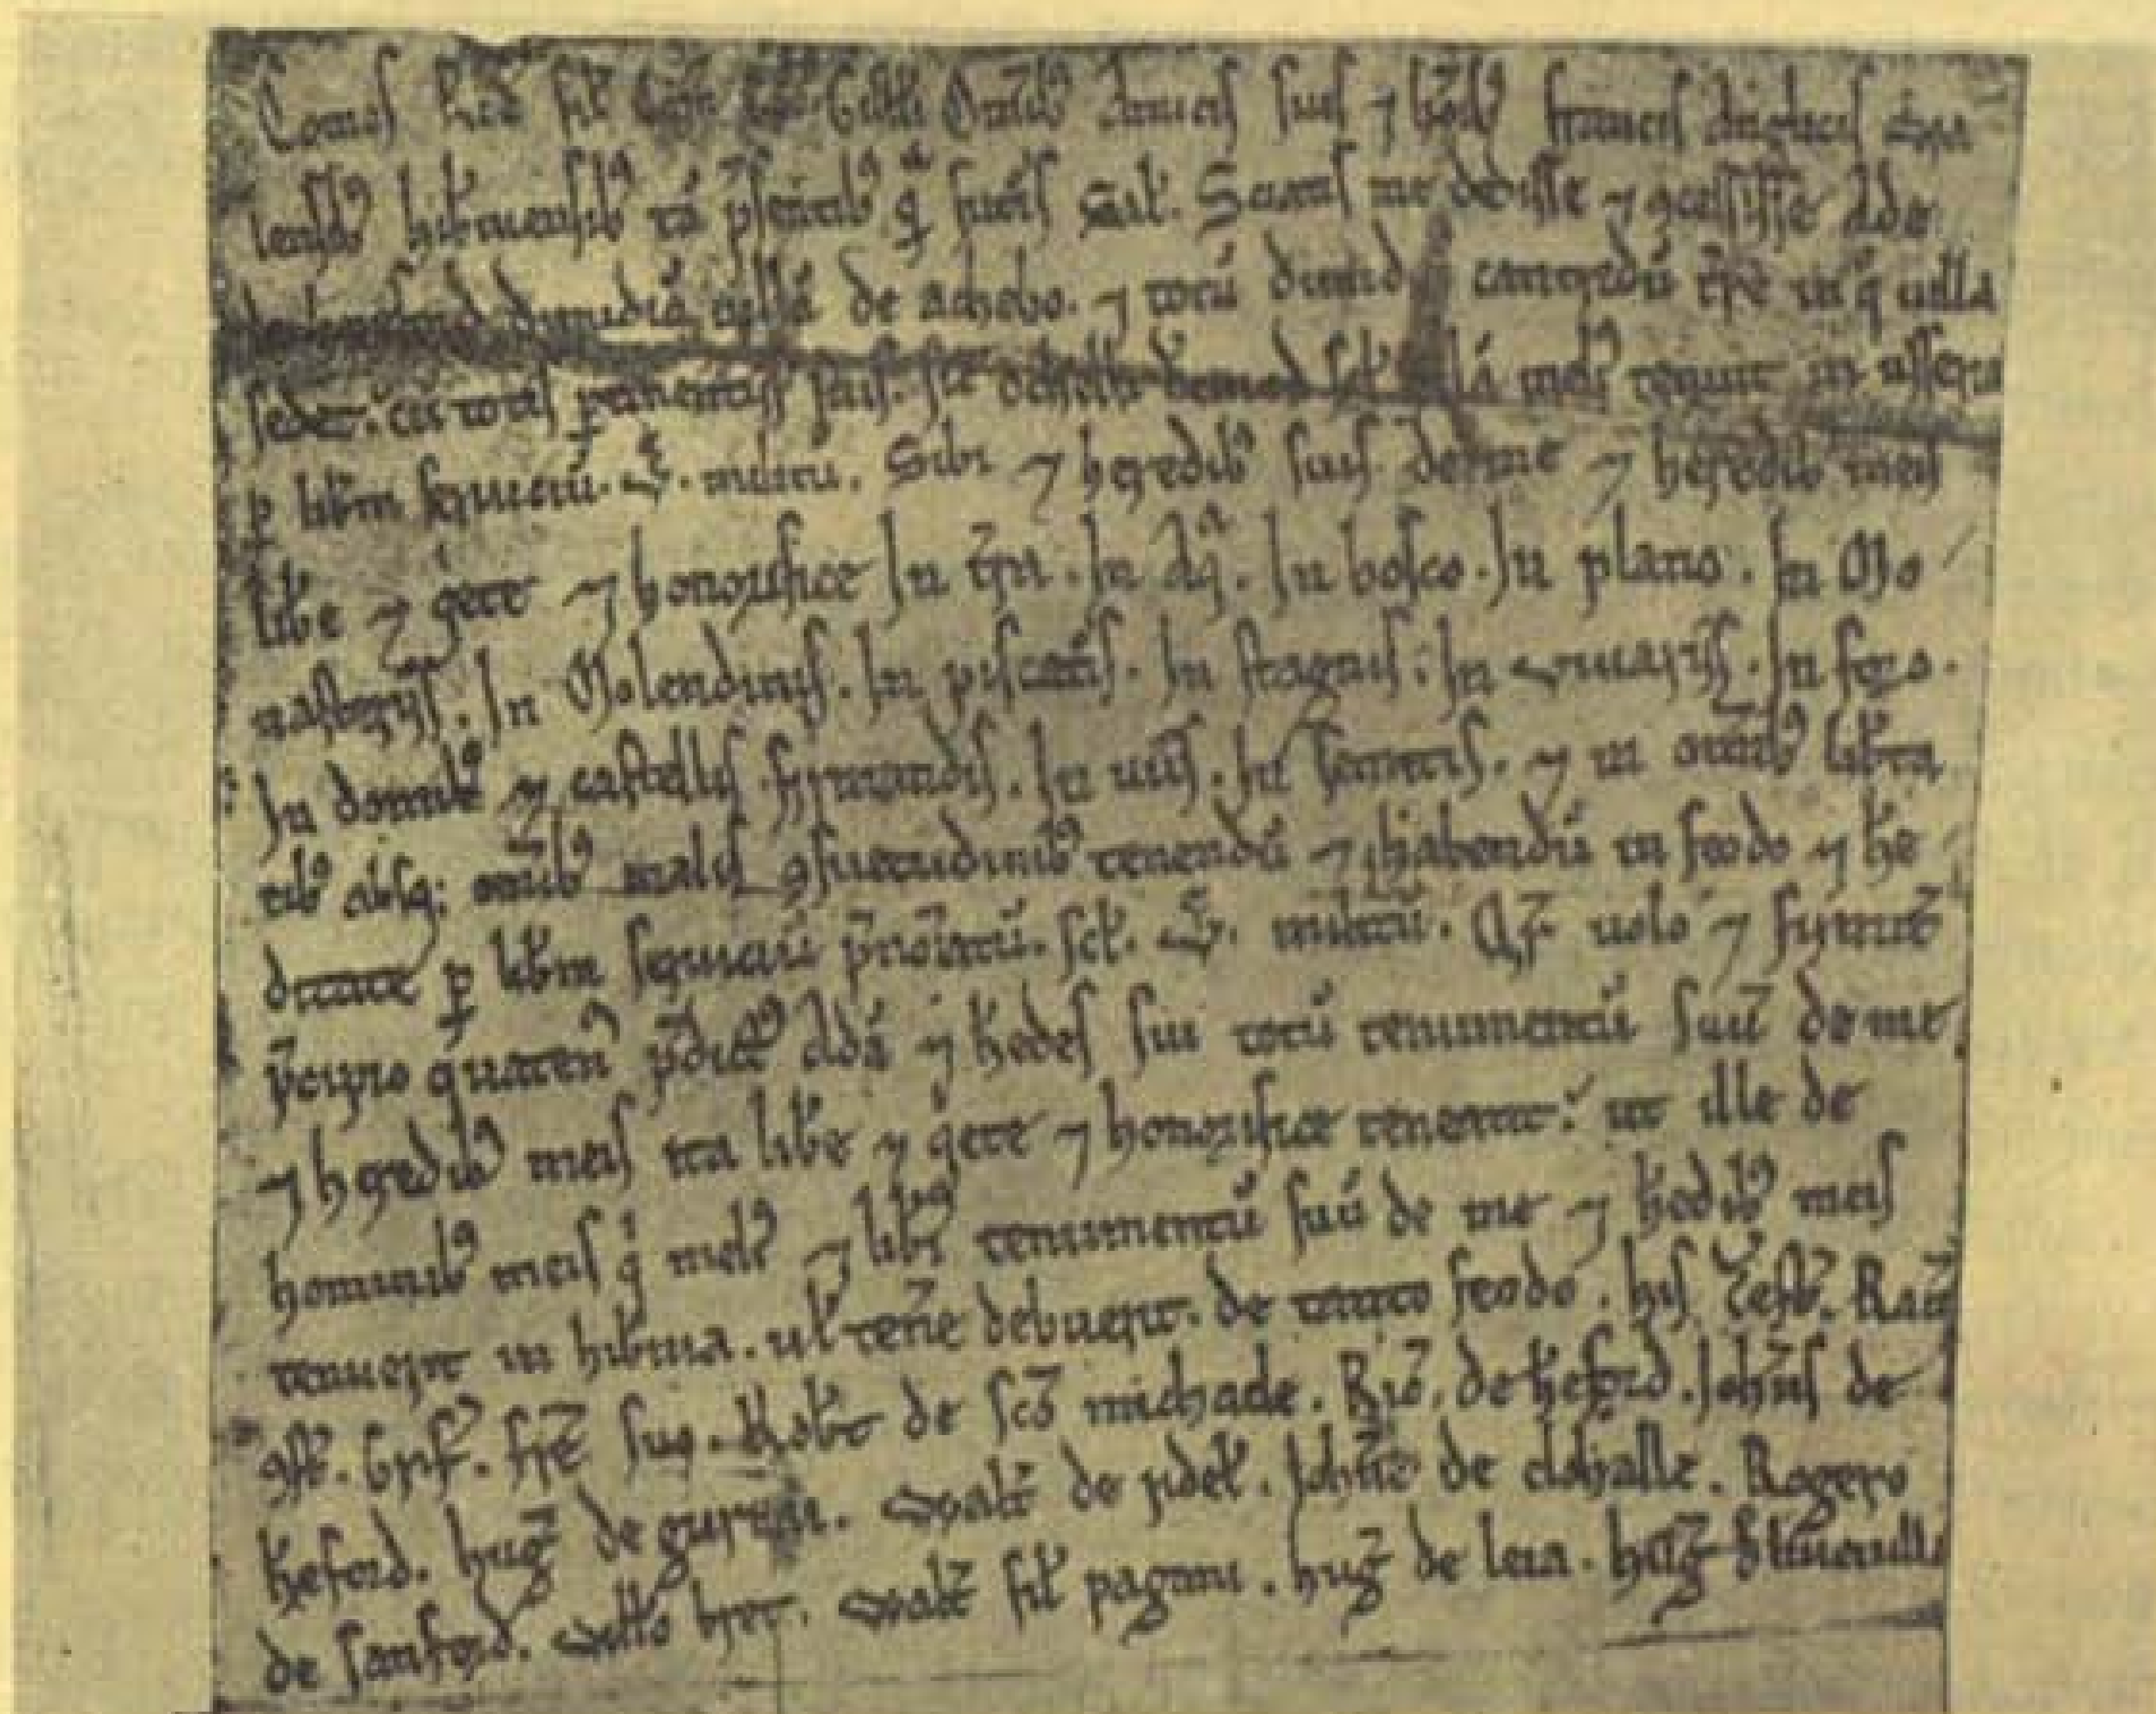 Comes Ric̄ fil̄ Com̄ Gilb̄ti Om̄ib⁹ Amicis suis ⁊ ho͞ib⁹ francis Anglicis Wa
lensib⁹ hib̄niensib⁹ tā p̄sentib⁹ qͣ fut̄is Sał. Sciatis me dedisse ⁊ ꝯcessisse Ade
de hereford dimidiā uillā de achebo. ⁊ totū dimid cantredū t̄re in q̄ uilla
sedet. cū totis ꝑtinentiis suis. sic̄ dermod scł illā meli⁹ tenuit in
ꝑ lib̄m seruiciū. v. militū. Sibi ⁊ heredib⁹ suis de me ⁊ heredib⁹ meis
lib̄e ⁊ qͥete ⁊ honorifice In t̄ra. In Aqͣ. In bosco. In plano. In Mo
nasteriis. In Molendinis. In piscat̄is. In stagnis. In viuariis. In foro.
In domib⁹ ⁊ castellis firmandis. In uiis. In semitis. ⁊ in omīb⁹ lib̄ta
tib⁹ absq; om̄ib⁹ malis ꝯsuetudinib⁹ tenendū ⁊ habendū in feodo ⁊ he
ditate ꝑ lib̄m seruiciū p̄no͞iatū. scł. v. militū. Qr̄ uolo ⁊ firmit̄
p̄cipio quaten⁹ p̄dict⁹ Adā ⁊ h̄edes sui totū tenementū suū de me
⁊ heredib⁹ meis ita lib̄e ⁊ qͥete ⁊ honorifice teneant. ut ille de
hominib⁹ meis qͥ meli⁹ ⁊ lib̄i⁹ tenementū suū de me ⁊ h̄edib⁹ meis
tenuerit in hib̄nia. uł ten̄e debuerit. de tanto feodo. his Testib̄. Raim̄
ꝯst̄. Grif. fr̄e suo. Rob̄t de sc̄o michaele. Ric̄. de h̄eford. Joh̄is de
h̄eford. hug̅ de gurnai. Walt̄ de rideł. Joh̄e de clohalle. Rogero
de sanford. Willo bret. Walt̄ fil̄ pagani. hug̅ de leia. hug̅